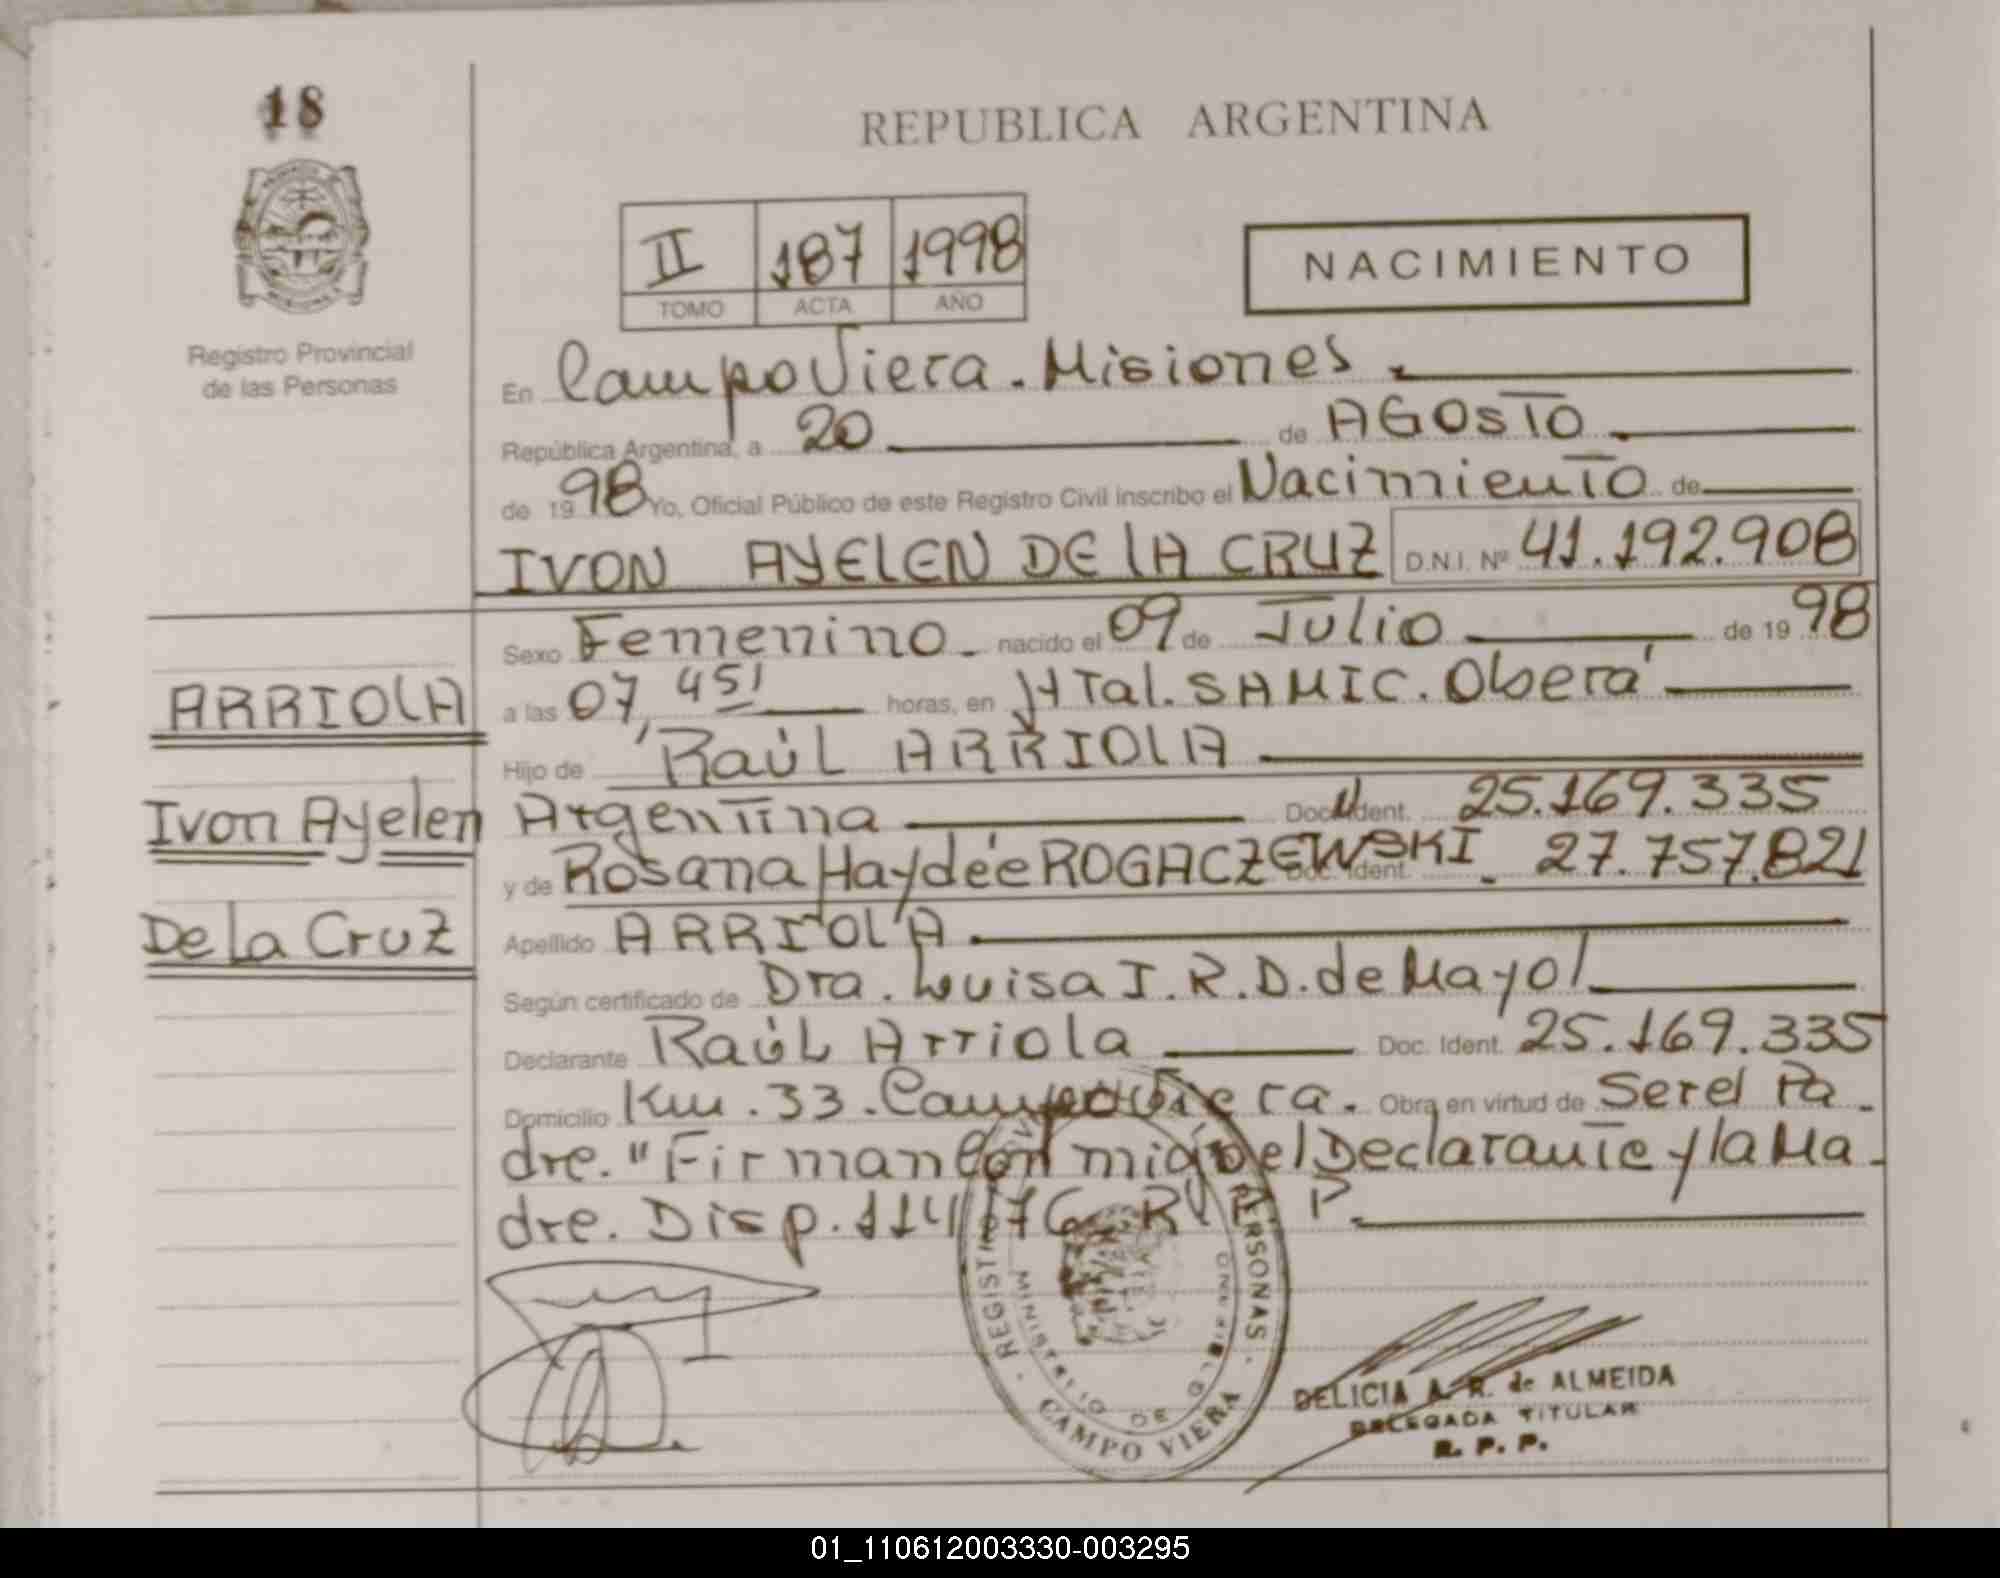 18
REPUBLICA ARGENTINA
II 187 1998
TOMO ACTA AÑO
NACIMIENTO
Registro Provincial
de las Personas
En Campo Viera. Misiones.
República Argentina, a 20 de AGOSTO
de 1998 Yo, Oficial Público de este Registro Civil inscribo el Nacimiento de
IVON AYELEN DE LA CRUZ D.N.I. Nº 41.192.908
Sexo Femenino. nacido el 09 de Julio de 1998
a las 07,45' horas, en HTal. SAMIC. Oberá
Hijo de Raúl ARRIOLA
Argentina Doc. Ident. 25.169.335
y de Rosana Haydée ROGACZEWSKI. Doc. Ident. 27.757.821
Apellido ARRIOLA.
Según certificado de Dra. Luisa I.R.D. de Mayol
Declarante Raúl Arriola Doc. Ident. 25.169.335
Domicilio Km. 33. Campo Viera. Obra en virtud de Ser el Pa-
dre. "Firman con migo el Declarante y la Ma-
dre. Disp. 114/76 R.P.P.
ARRIOLA
Ivon Ayelen
De La Cruz
REGISTRO PERSONAS
MINISTERIO DE
CAMPO VIERA
DELICIA A. R. de ALMEIDA
DELEGADA TITULAR
R. P. P.
01_110612003330-003295